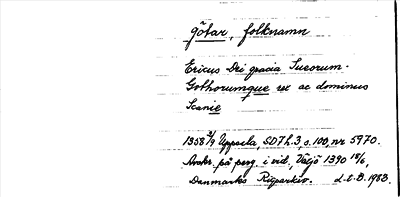 götar, folknamn
Ericus Dei gracia Sueorum-
Gothorumque rex ac dominus
Scanie
1358 2/9 Uppsala, SD 7 h. 3, s. 100, nr 5970.
Avskr. på perg. i vid., Växjö 1390 18/6,
Danmarks Riksarkiv. L.E.B. 1983.